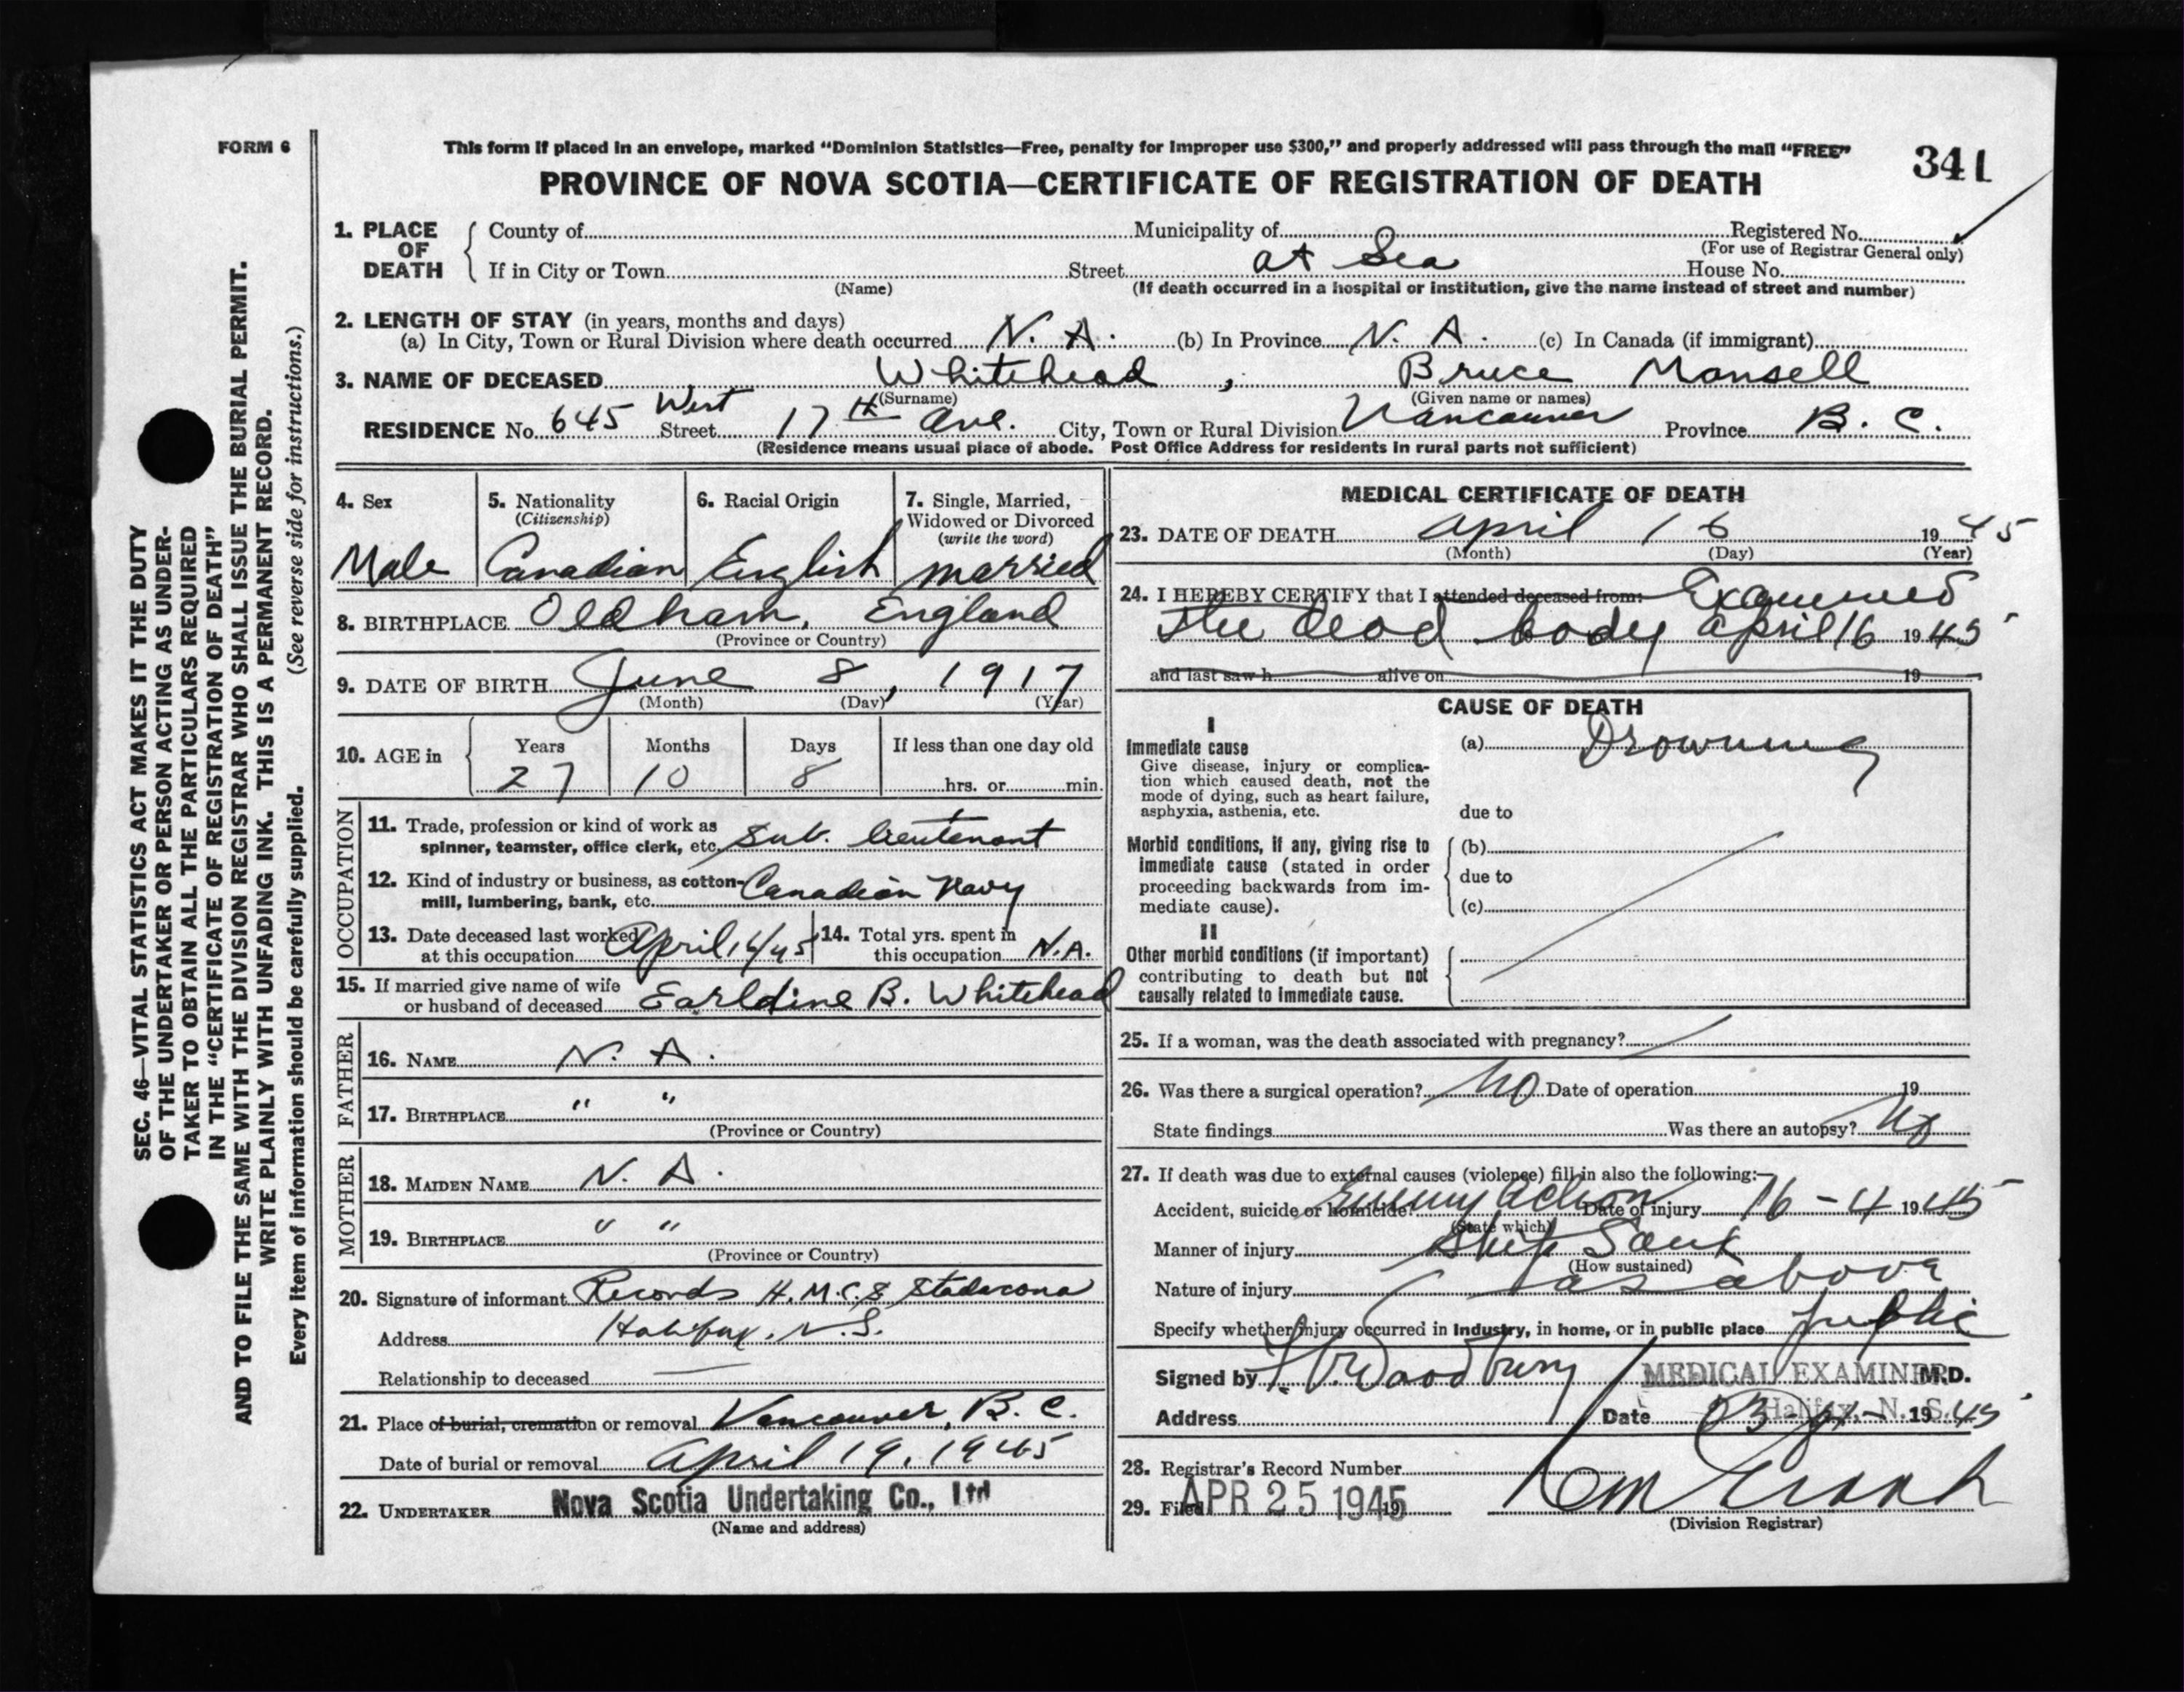 FORM 6
This form if placed in an envelope, marked "Dominion Statistics—Free, penalty for improper use $300," and properly addressed will pass through the mail "FREE"
341
PROVINCE OF NOVA SCOTIA—CERTIFICATE OF REGISTRATION OF DEATH
SEC. 46—VITAL STATISTICS ACT MAKES IT THE DUTY
OF THE UNDERTAKER OR PERSON ACTING AS UNDER-
TAKER TO OBTAIN ALL THE PARTICULARS REQUIRED
IN THE "CERTIFICATE OF REGISTRATION OF DEATH"
AND TO FILE THE SAME WITH THE DIVISION REGISTRAR WHO SHALL ISSUE THE BURIAL PERMIT.
WRITE PLAINLY WITH UNFADING INK. THIS IS A PERMANENT RECORD.
Every item of information should be carefully supplied. (See reverse side for instructions.)
1. PLACE OF DEATH
County of Municipality of Registered No.
(For use of Registrar General only)
If in City or Town Street at Sea House No.
(Name) (If death occurred in a hospital or institution, give the name instead of street and number)
2. LENGTH OF STAY (in years, months and days)
(a) In City, Town or Rural Division where death occurred N. A. (b) In Province N. A. (c) In Canada (if immigrant)
3. NAME OF DECEASED Whitehead, Bruce Mansell
(Surname) (Given name or names)
RESIDENCE No. 645 West Street 17th Ave. City, Town or Rural Division Vancouver Province B. C.
(Residence means usual place of abode. Post Office Address for residents in rural parts not sufficient)
4. Sex
Male
5. Nationality
(Citizenship)
Canadian
6. Racial Origin
English
7. Single, Married,
Widowed or Divorced
(write the word)
married
8. BIRTHPLACE Oldham, England
(Province or Country)
9. DATE OF BIRTH June 8, 1917
(Month) (Day) (Year)
10. AGE in
Years Months Days If less than one day old
27 10 8 hrs. or min.
OCCUPATION
11. Trade, profession or kind of work as
spinner, teamster, office clerk, etc. Sub. lieutenant
12. Kind of industry or business, as cotton-
mill, lumbering, bank, etc. Canadian Navy
13. Date deceased last worked
at this occupation April 16/45
14. Total yrs. spent in
this occupation N.A.
15. If married give name of wife
or husband of deceased Earldine B. Whitehead
FATHER
16. NAME N. A.
17. BIRTHPLACE " "
(Province or Country)
MOTHER
18. MAIDEN NAME N. A.
19. BIRTHPLACE " "
(Province or Country)
20. Signature of informant Records H.M.C.S Stadacona
Address Halifax, N.S.
Relationship to deceased —
21. Place of burial, cremation or removal Vancouver, B. C.
Date of burial or removal April 19, 1945
22. UNDERTAKER Nova Scotia Undertaking Co., Ltd
(Name and address)
MEDICAL CERTIFICATE OF DEATH
23. DATE OF DEATH April 16 1945
(Month) (Day) (Year)
24. I HEREBY CERTIFY that I attended deceased from: Examined
the dead body April 16 1945
and last saw h alive on 19
CAUSE OF DEATH
I
Immediate cause
Give disease, injury or complica-
tion which caused death, not the
mode of dying, such as heart failure,
asphyxia, asthenia, etc.
(a) Drowning
due to
Morbid conditions, if any, giving rise to
immediate cause (stated in order
proceeding backwards from im-
mediate cause).
(b)
due to
(c)
II
Other morbid conditions (if important)
contributing to death but not
causally related to immediate cause.
25. If a woman, was the death associated with pregnancy?
26. Was there a surgical operation? No Date of operation 19
State findings Was there an autopsy? No
27. If death was due to external causes (violence) fill in also the following:
Accident, suicide or homicide? Enemy action Date of injury 16 - 4 1945
(State which)
Manner of injury Ship Sank
(How sustained)
Nature of injury as above
Specify whether injury occurred in industry, in home, or in public place public
Signed by Woodbury MEDICAL EXAMINER M.D.
Address Date Halifax, N. S. 1945
28. Registrar's Record Number
29. Filed APR 25 1945 19
(Division Registrar)